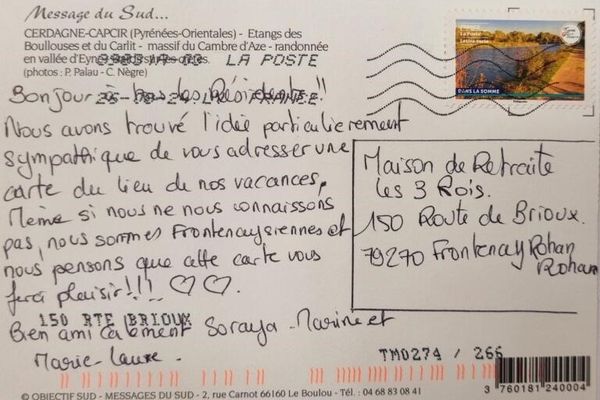 Message du Sud...
CERDAGNE-CAPCIR (Pyrénées-Orientales) - Etangs des
Bouillouses et du Carlit - massif du Cambre d'Aze - randonnée
en vallée d'Eyne
(photos : P. Palau - C. Nègre)
LA POSTE
DANS LA SOMME
Bonjour à tous les Résidents !!
Nous avons trouvé l'idée particulièrement
sympathique de vous adresser une
carte du lieu de nos vacances,
Même si nous ne nous connaissons
pas, nous sommes Frontenaysiennes et
nous pensons que cette carte vous
fera plaisir !!! ♡♡.
150 RTE BRIOUX
Bien amicalement Soraya - Marine et
Marie-Laure.
Maison de Retraite
les 3 Rois.
150 Route de Brioux.
79270 Frontenay Rohan
Rohan
TM0274 / 266
3 760181 240004
© OBJECTIF SUD - MESSAGES DU SUD - 2, rue Carnot 66160 Le Boulou - Tél. : 04 68 83 08 41